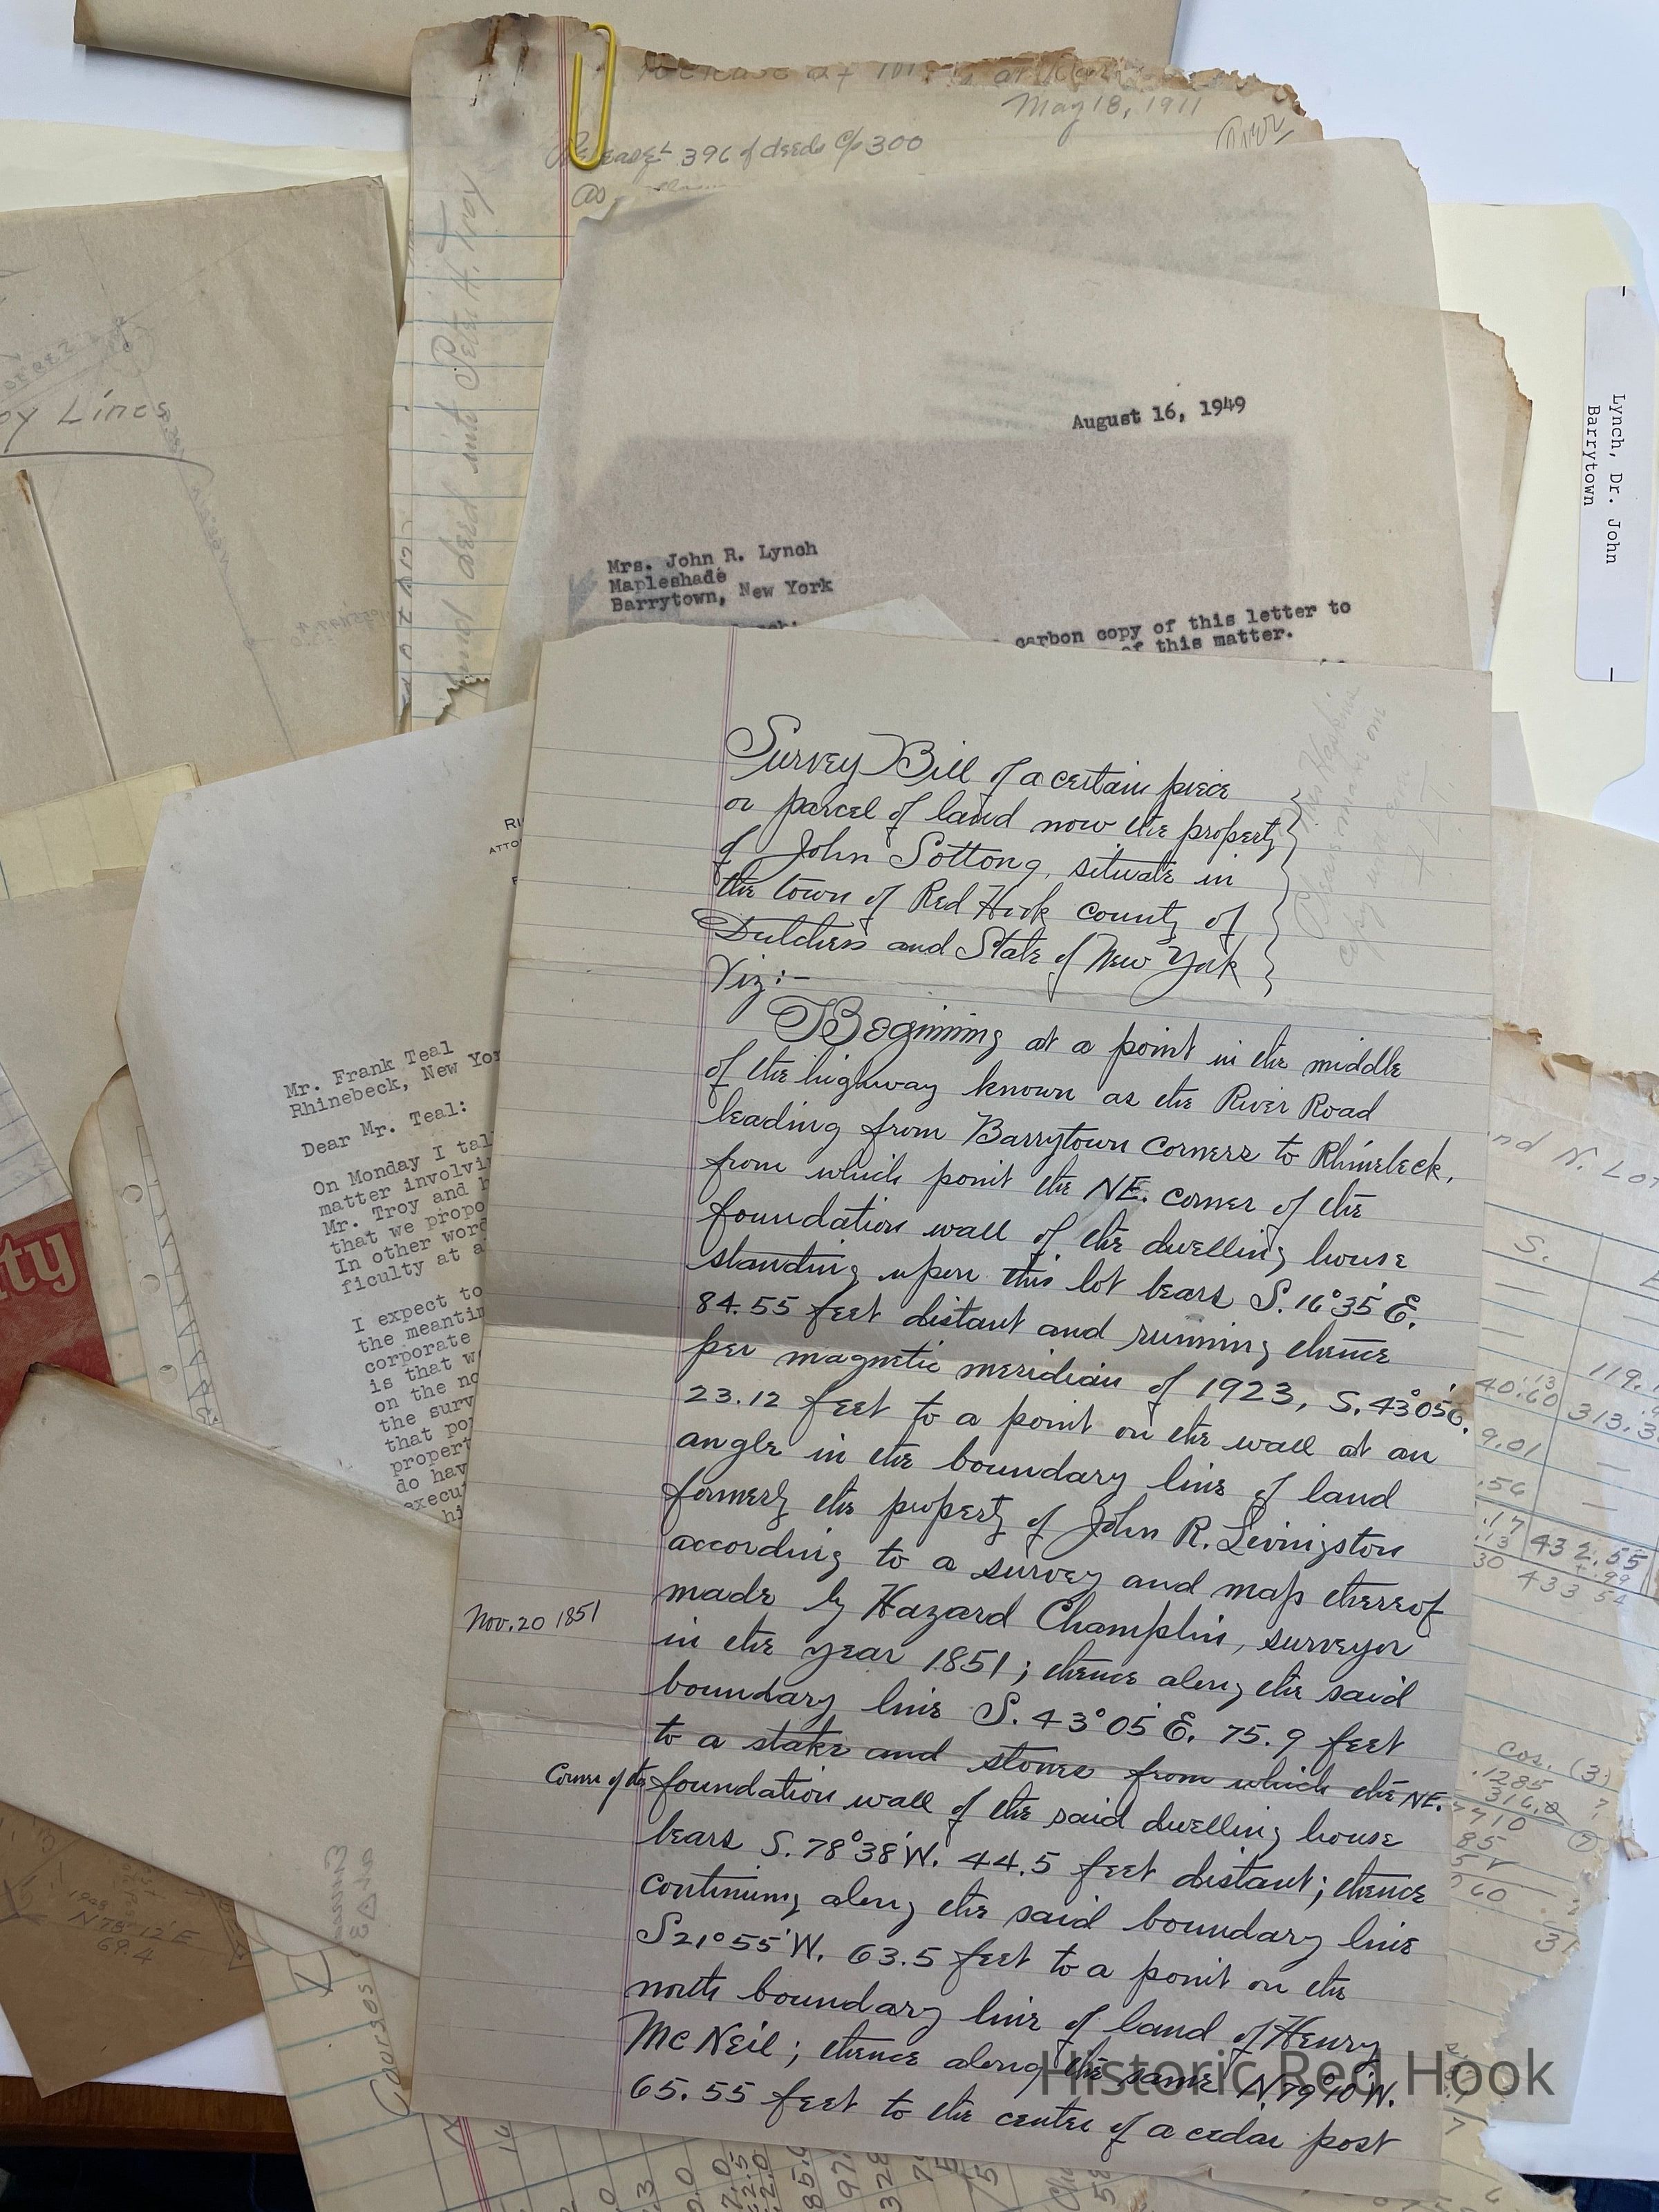 May 18, 1911
396 of deeds 300
as
deed into Peter H. Troy
Lines
August 16, 1949
Mrs. John R. Lynch
Mapleshade
Barrytown, New York
carbon copy of this letter to
of this matter.
Lynch, Dr. John
Barrytown
Survey Bill of a certain piece
or parcel of land now the property
of John Sottong, situate in
the town of Red Hook county of
Dutchess and State of New York
Viz:-
Beginning at a point in the middle
of the highway known as the River Road
leading from Barrytown Corners to Rhinebeck,
from which point the NE. corner of the
foundation wall of the dwelling house
standing upon this lot bears S. 16°35'E.
84.55 feet distant and running thence
per magnetic meridian of 1923, S. 43°05'E.
23.12 feet to a point on the wall at an
angle in the boundary line of land
formerly the property of John R. Livingston
according to a survey and map thereof
made by Hazard Champlin, surveyor
Nov. 20 1851
in the year 1851; thence along the said
boundary line S. 43°05'E. 75.9 feet
to a stake and stones from which the NE.
Corner of the foundation wall of the said dwelling house
bears S. 78°38'W. 44.5 feet distant; thence
continuing along the said boundary line
S21°55'W. 63.5 feet to a point on the
north boundary line of land of Henry
McNeil; thence along the same N.79°10'W.
65.55 feet to the center of a cedar post
RI
ATTO
Mr. Frank Teal
Rhinebeck, New Yor
Dear Mr. Teal:
On Monday I tal
matter involvi
Mr. Troy and h
that we propo
In other word
ficulty at a
I expect to
the meantim
corporate
is that w
on the no
the surv
that por
propert
do hav
execut
hi
ty
nd N. Lot
S.
119.
.13
40.60
313.3
9.01
.56
.17
.13
30
432.55
.99
433.54
cos. (3)
.1285
316.8
7710
85
60
31
N 78° 12' E
69.4
Courses
Historic Red Hook